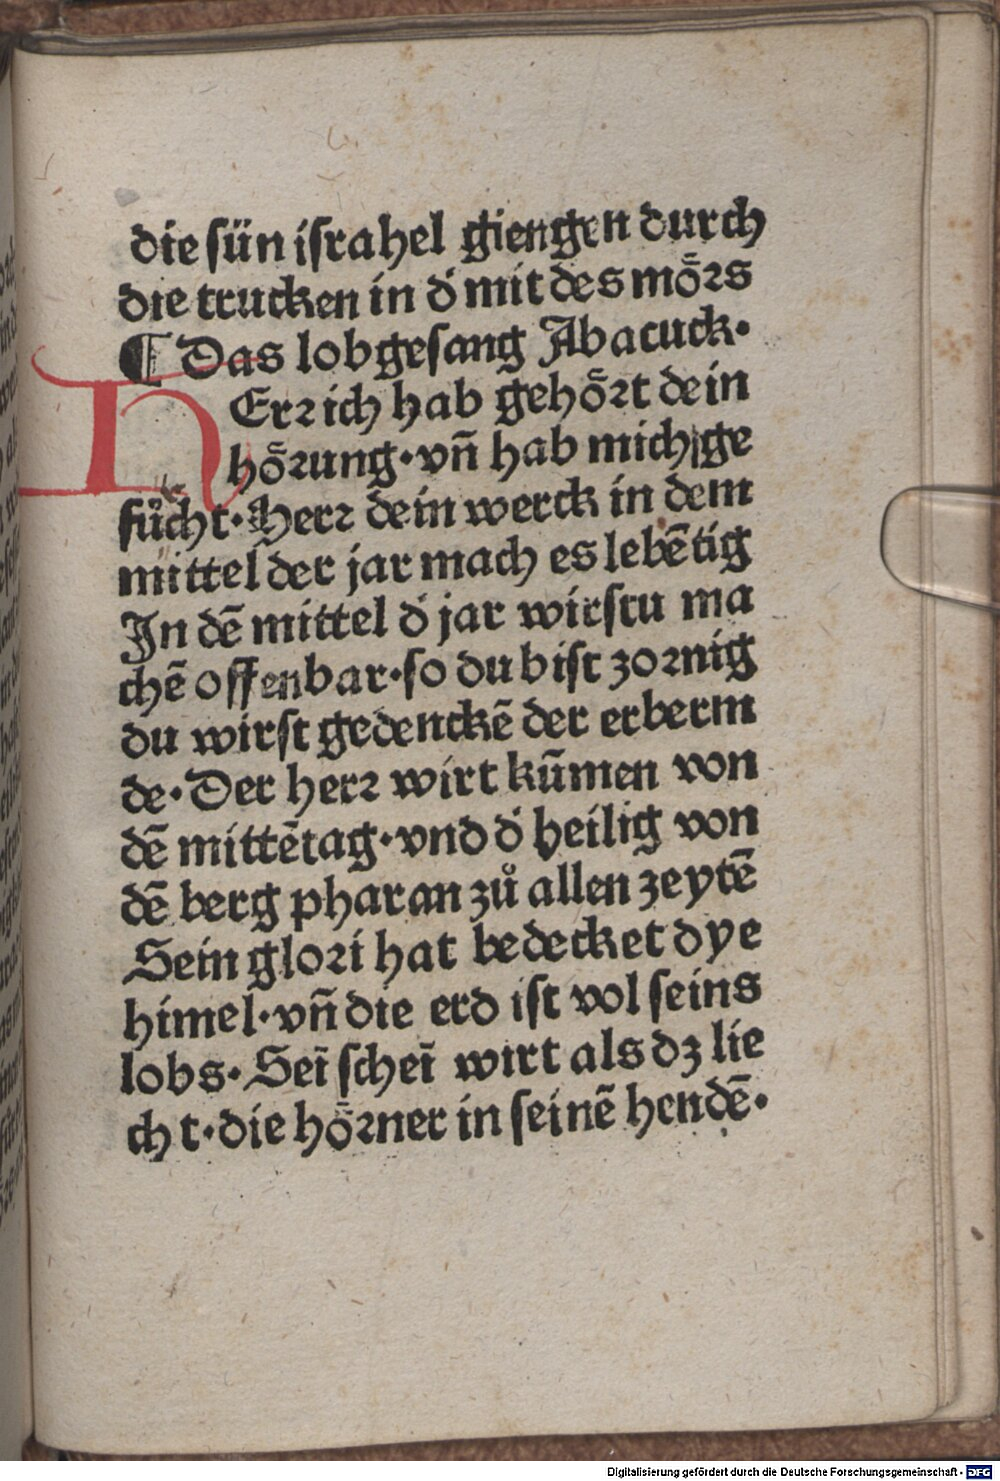 die sün israhel giengen durch
die trucken in d' mit des mörs
¶ Das lobgesang Abacuck·
HErr ich hab gehört dein
hörung· vñ hab mich ge
fücht· Herr dein werck in dem
mittel der jar mach es lebētig
In dē mittel d' jar wirstu ma
chē offenbar· so du bist zornig
du wirst gedenckē der erberm
de· Der herr wirt kūmen von
dē mittētag· vnd d' heilig von
dē berg pharan zů allen zeytē
Sein glori hat bedecket dye
himel· vñ die erd ist vol seins
lobs· Sei͞ schei͞ wirt als dz lie
cht· die hörner in seinē hendē·
Digitalisierung gefördert durch die Deutsche Forschungsgemeinschaft - DFG